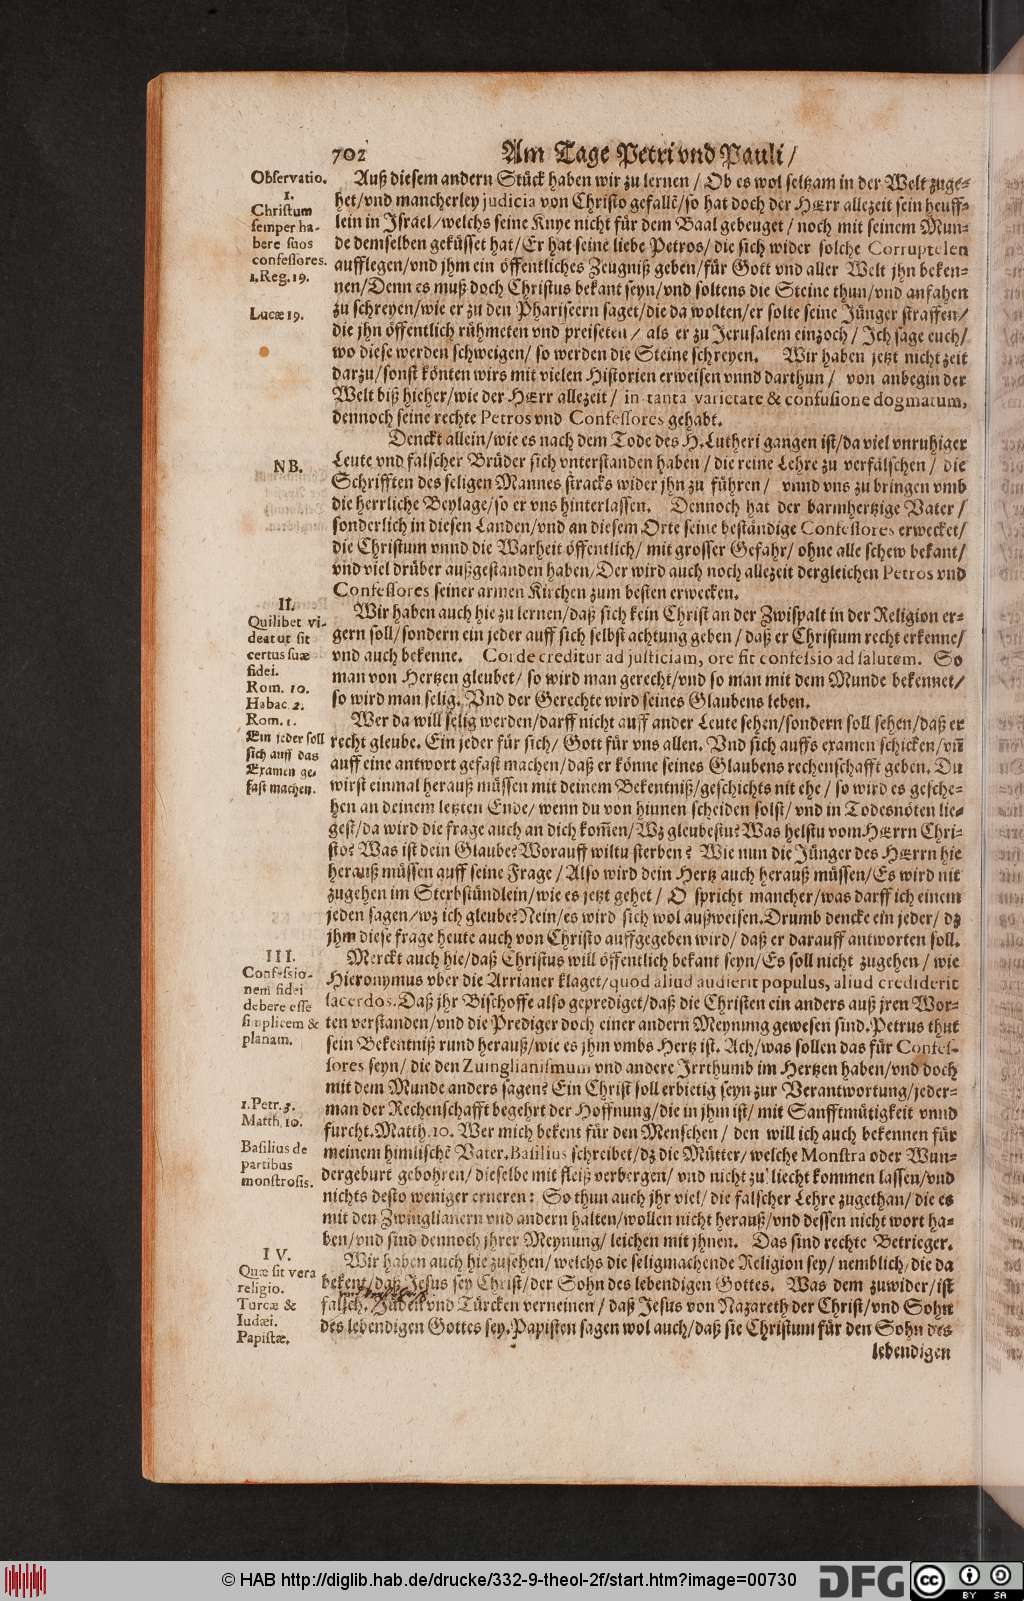 702 Am Tage Petri vnd Pauli /
Observatio.
I.
Christum
semper ha-
bere suos
confessores.
1. Reg. 19.
Lucæ 19.
Auß diesem andern Stück haben wir zu lernen / Ob es wol seltzam in der Welt zuge-
het/vnd mancherley judicia von Christo gefallē/so hat doch der HErr allezeit sein heuff-
lein in Jsrael/welchs seine Knye nicht für dem Baal gebeuget / noch mit seinem Mun-
de demselben geküsset hat/Er hat seine liebe Petros/ die sich wider solche Corruptelen
aufflegen/vnd jhm ein öffentliches Zeugniß geben/für Gott vnd aller Welt jhn beken-
nen/Denn es muß doch Christus bekant seyn/vnd soltens die Steine thun/vnd anfahen
zu schreyen/wie er zu den Phariseern saget/die da wolten/er solte seine Jünger straffen/
die jhn öffentlich rühmeten vnd preiseten / als er zu Jerusalem einzoch / Jch sage euch/
wo diese werden schweigen/ so werden die Steine schreyen. Wir haben jetzt nicht zeit
darzu/sonst könten wirs mit vielen Historien erweisen vnnd darthun / von anbegin der
Welt biß hieher/wie der HErr allezeit / in tanta varietate & confusione dogmatum,
dennoch seine rechte Petros vnd Confessores gehabt.
NB.
Denckt allein/wie es nach dem Tode des H. Lutheri gangen ist/da viel vnruhiger
Leute vnd falscher Brüder sich vnterstanden haben / die reine Lehre zu verfälschen / die
Schrifften des seligen Mannes stracks wider jhn zu führen / vnnd vns zu bringen vmb
die herrliche Beylage/so er vns hinterlassen. Dennoch hat der barmhertzige Vater /
sonderlich in diesen Landen/vnd an diesem Orte seine beständige Confessores erwecket/
die Christum vnnd die Warheit öffentlich/ mit grosser Gefahr/ ohne alle schew bekant/
vnd viel drüber außgestanden haben/Der wird auch noch allezeit dergleichen Petros vnd
Confessores seiner armen Kirchen zum besten erwecken.
II.
Quilibet vi-
deat ut sit
certus suæ
fidei.
Rom. 10.
Habac. 2.
Rom. 1.
Ein jeder soll
sich auff das
Examen ge-
fast machen.
Wir haben auch hie zu lernen/daß sich kein Christ an der Zwispalt in der Religion er-
gern soll/sondern ein jeder auff sich selbst achtung geben / daß er Christum recht erkenne/
vnd auch bekenne. Corde creditur ad justiciam, ore fit confessio ad salutem. So
man von Hertzen gleubet/ so wird man gerecht/vnd so man mit dem Munde bekennet/
so wird man selig. Vnd der Gerechte wird seines Glaubens leben.
Wer da will selig werden/darff nicht auff ander Leute sehen/sondern soll sehen/daß er
recht gleube. Ein jeder für sich/ Gott für vns allen. Vnd sich auffs examen schicken/vn̄
auff eine antwort gefast machen/daß er könne seines Glaubens rechenschafft geben. Du
wirst einmal herauß müssen mit deinem Bekentniß/geschichts nit ehe / so wird es gesche-
hen an deinem letzten Ende/ wenn du von hinnen scheiden solst/ vnd in Todesnöten lie-
gest/da wird die frage auch an dich kom̄en/Wz gleubestu? Was helstu vom HErrn Chri-
sto? Was ist dein Glaube? Worauff wiltu sterben? Wie nun die Jünger des HErrn hie
herauß müssen auff seine Frage / Also wird dein Hertz auch herauß müssen/Es wird nit
zugehen im Sterbstündlein/wie es jetzt gehet / O spricht mancher/was darff ich einem
jeden sagen/wz ich gleube? Nein/es wird sich wol außweisen. Drumb dencke ein jeder/ dz
jhm diese frage heute auch von Christo auffgegeben wird/ daß er darauff antworten soll.
III.
Confessio-
nem fidei
debere esse
simplicem &
planam.
1. Petr. 3.
Matth. 10.
Basilius de
partibus
monstrosis.
Merckt auch hie/daß Christus will öffentlich bekant seyn/Es soll nicht zugehen / wie
Hieronymus vber die Arrianer klaget/quod aliud audierit populus, aliud crediderit
sacerdos. Daß jhr Bischoffe also geprediget/daß die Christen ein anders auß jren Wor-
ten verstanden/vnd die Prediger doch einer andern Meynung gewesen sind. Petrus thut
sein Bekentniß rund herauß/wie es jhm vmbs Hertz ist. Ach/was sollen das für Confes-
sores seyn/ die den Zuinglianismum vnd andere Irrthumb im Hertzen haben/vnd doch
mit dem Munde anders sagen? Ein Christ soll erbietig seyn zur Verantwortung/jeder-
man der Rechenschafft begehrt der Hoffnung/die in jhm ist/ mit Sanfftmütigkeit vnnd
furcht. Matth. 10. Wer mich bekent für den Menschen / den will ich auch bekennen für
meinem himlischē Vater. Basilius schreibet/dz die Mütter/ welche Monstra oder Wun-
dergeburt gebohren/ dieselbe mit fleiß verbergen/ vnd nicht zu liecht kommen lassen/vnd
nichts desto weniger erneren: So thun auch jhr viel/ die falscher Lehre zugethan/ die es
mit den Zwinglianern vnd andern halten/wollen nicht herauß/vnd dessen nicht wort ha-
ben/vnd sind dennoch jhrer Meynung/ leichen mit jhnen. Das sind rechte Betrieger.
IV.
Quæ sit vera
religio.
Turcæ &
Iudæi.
Papistæ.
Wir haben auch hie zusehen/ welchs die seligmachende Religion sey/ nemblich/die da
bekent/daß Jesus sey Christ/der Sohn des lebendigen Gottes. Was dem zuwider/ist
falsch. Jüden vnd Türcken verneinen / daß Jesus von Nazareth der Christ/vnd Sohn
des lebendigen Gottes sey. Papisten sagen wol auch/daß sie Christum für den Sohn des
lebendigen
© HAB http://diglib.hab.de/drucke/332-9-theol-2f/start.htm?image=00730
DFG
cc
BY SA